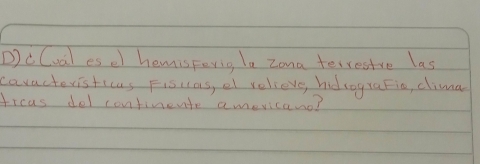 D) ¿Cuál es el hemisferio, la zona terrestre las
características físicas, el relieve, hidrografia, clima
ticas del continente americano?